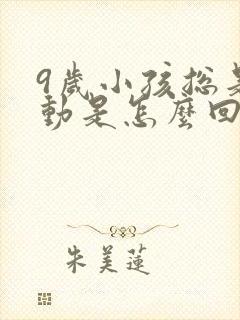 9歲小孩總是
動是怎麼回
朱美蓮